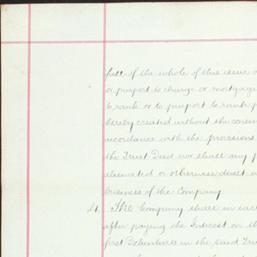 half of the whole of this issue
or purport to charge or mortgage
to rank or to purport to rank
hereby created without the consen
accordance with the provisions
the Trust Deed nor shall any
alienated or otherwise dealt
business of the Company
4. The Company shall in eac
after paying the Interest on th
first Debentures in the said Tru